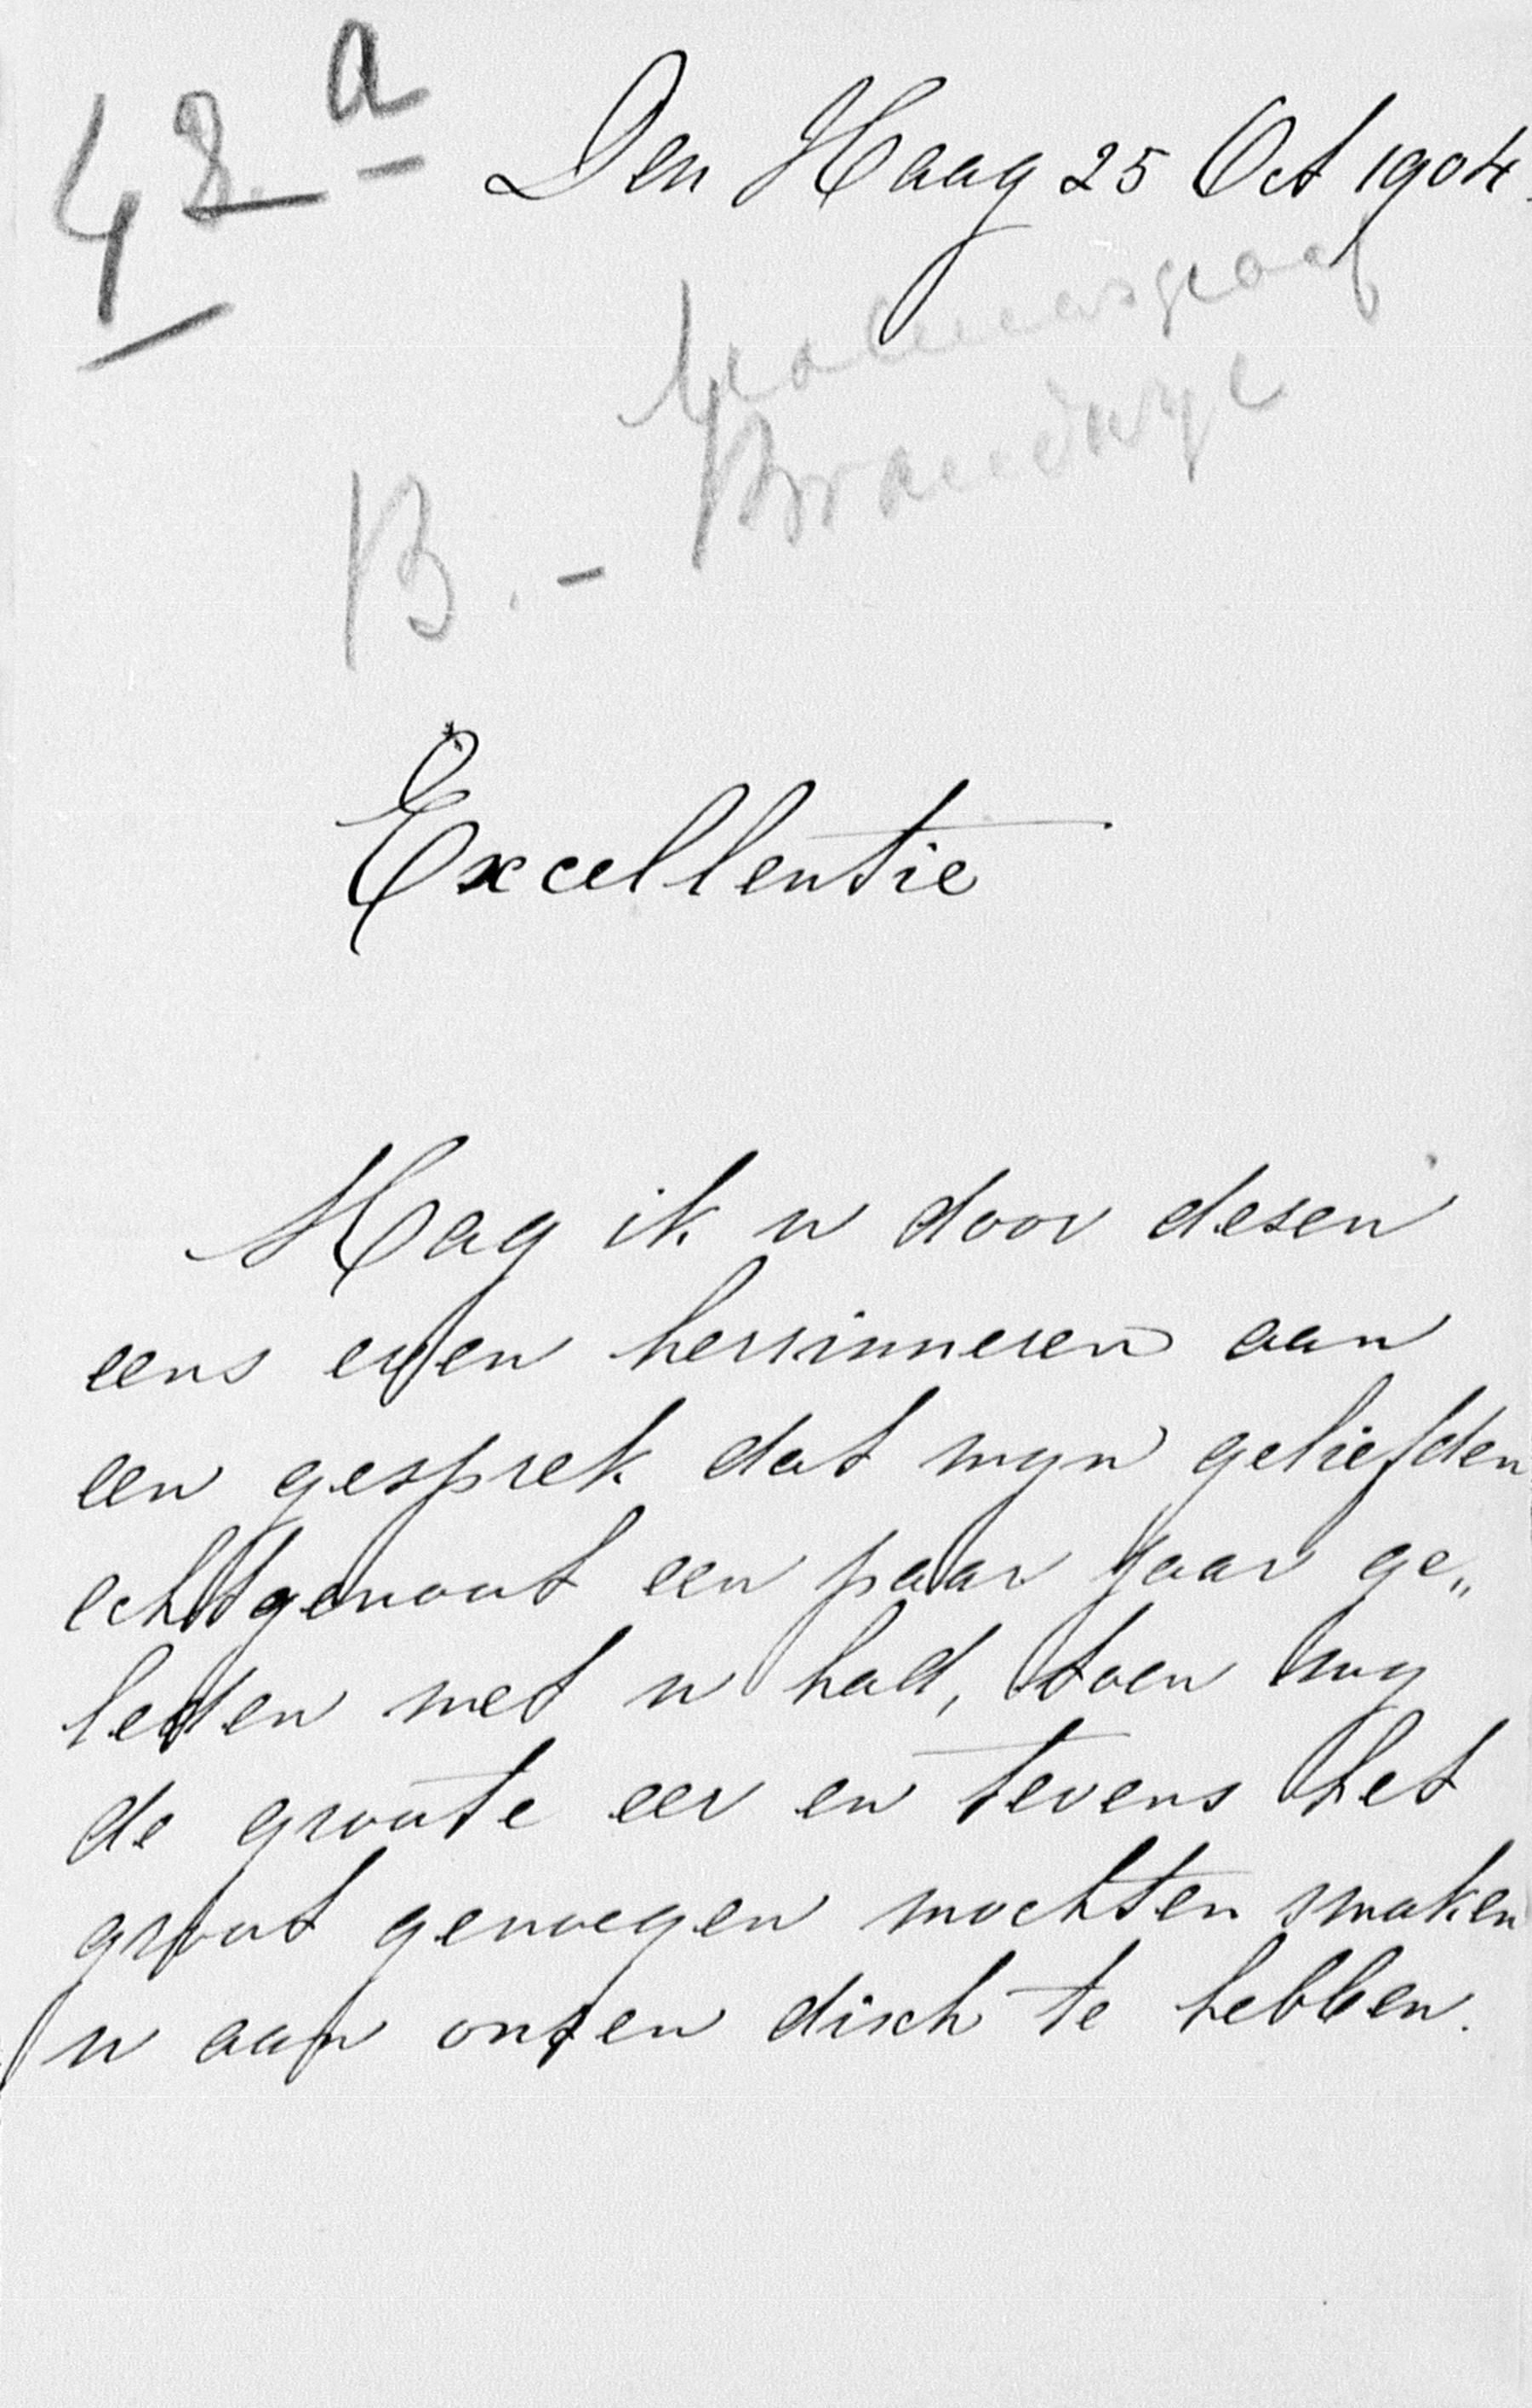 42 a
Den Haag 25 Oct 1904.
Molenaarsgraaf
Brandwyk
B. -
Excellentie
Mag ik u door desen
eens even herrinneren aan
een gesprek dat myn geliefden
echtgenoot een paar jaar ge„
leden met u had, toen wy
de groote eer en tevens het
groot genoegen mochten smaken
u aan onzen disch te hebben.